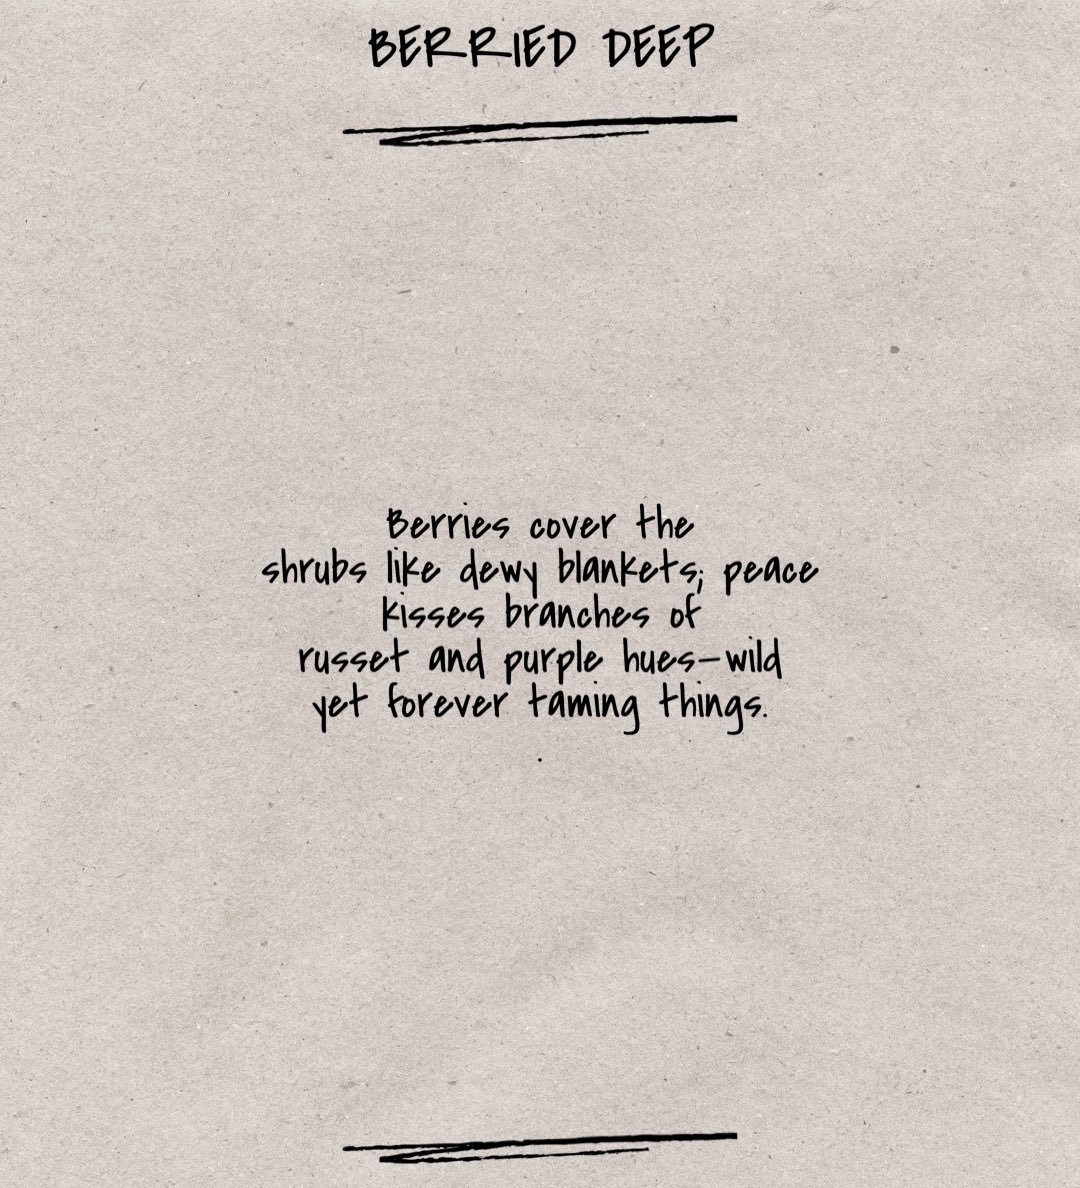 BERRIED DEEP
Berries cover the
shrubs like dewy blankets; peace
kisses branches of
russet and purple hues—wild
yet forever taming things.
.